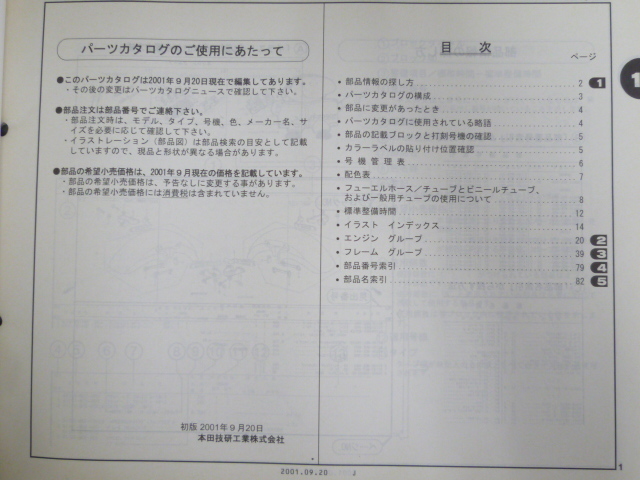 パーツカタログのご使用にあたって
●このパーツカタログは2001年9月20日現在で編集してあります。
・その後の変更はパーツカタログニュースで確認して下さい。
●部品注文は部品番号でご連絡下さい。
・部品注文時は、モデル、タイプ、号機、色、メーカー名、サ
イズを必要に応じて確認して下さい。
・イラストレーション（部品図）は部品検索の目安として記載
していますので、現品と形状が異なる場合があります。
●部品の希望小売価格は、2001年9月現在の価格を記載しています。
・部品の希望小売価格は、予告なしに変更する事があります。
・部品の希望小売価格には消費税は含まれていません。
初版 2001年9月20日
本田技研工業株式会社
目 次
ページ
• 部品情報の探し方 2 1
• パーツカタログの構成 3
• 部品に変更があったとき 4
• パーツカタログに使用されている略語 4
• 部品の記載ブロックと打刻号機の確認 5
• カラーラベルの貼り付け位置確認 5
• 号機管理表 6
• 配色表 7
• フューエルホース／チューブとビニールチューブ、
および一般用チューブの使用について 8
• 標準整備時間 12
• イラスト インデックス 14
• エンジン グループ 20 2
• フレーム グループ 39 3
• 部品番号索引 79 4
• 部品名索引 82 5
1
2001.09.20
1